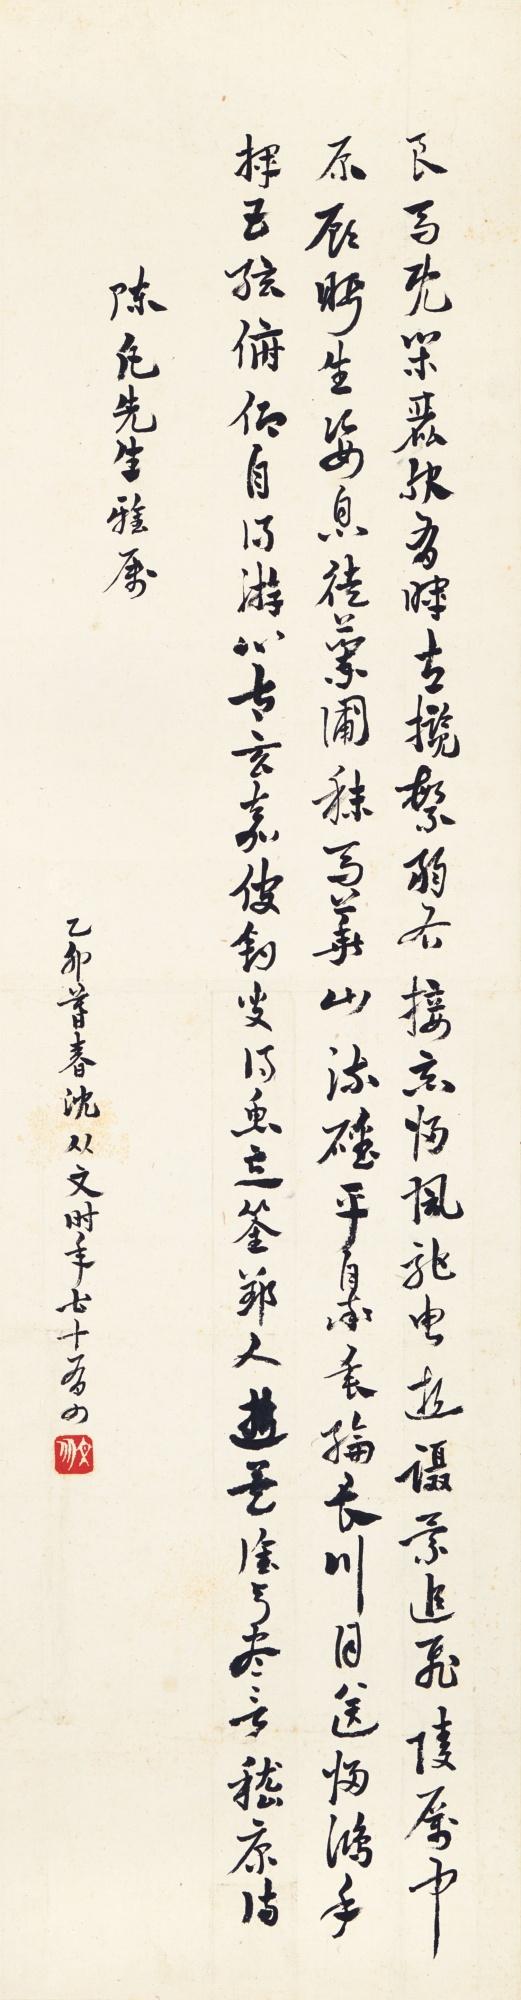 良马既闲丽服有晖左揽繁弱右接忘归风驰电逝蹑景追飞陵厉中
原顾眄生姿息徒兰圃秣马华山流磻平皋垂纶长川目送归鸿手
挥五弦俯仰自得游心太玄嘉彼钓叟得鱼忘筌郢人逝矣谁与尽言嵇康诗
陈凡先生雅属
乙卯暮春沈从文时年七十有四